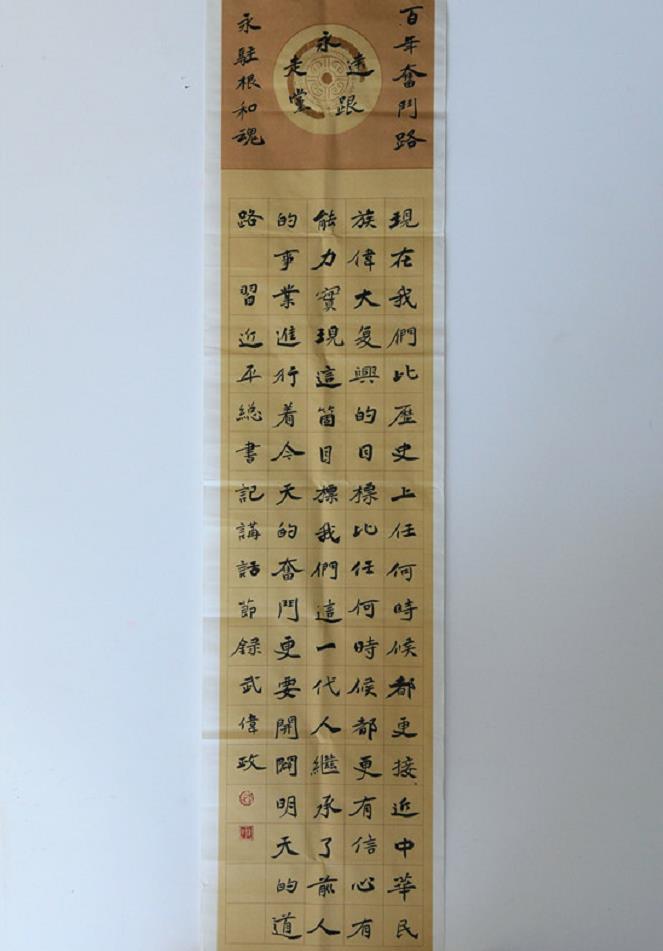 百年奮鬥路
永遠跟黨走
永駐根和魂
現在我們比歷史上任何時候都更接近中華民
族偉大复興的目標比任何時候都更有信心有
能力實現這箇目標我們這一代人繼承了前人
的事業進行着今天的奮鬥更要開闢明天的道
路 習近平總書記講話節錄武偉政